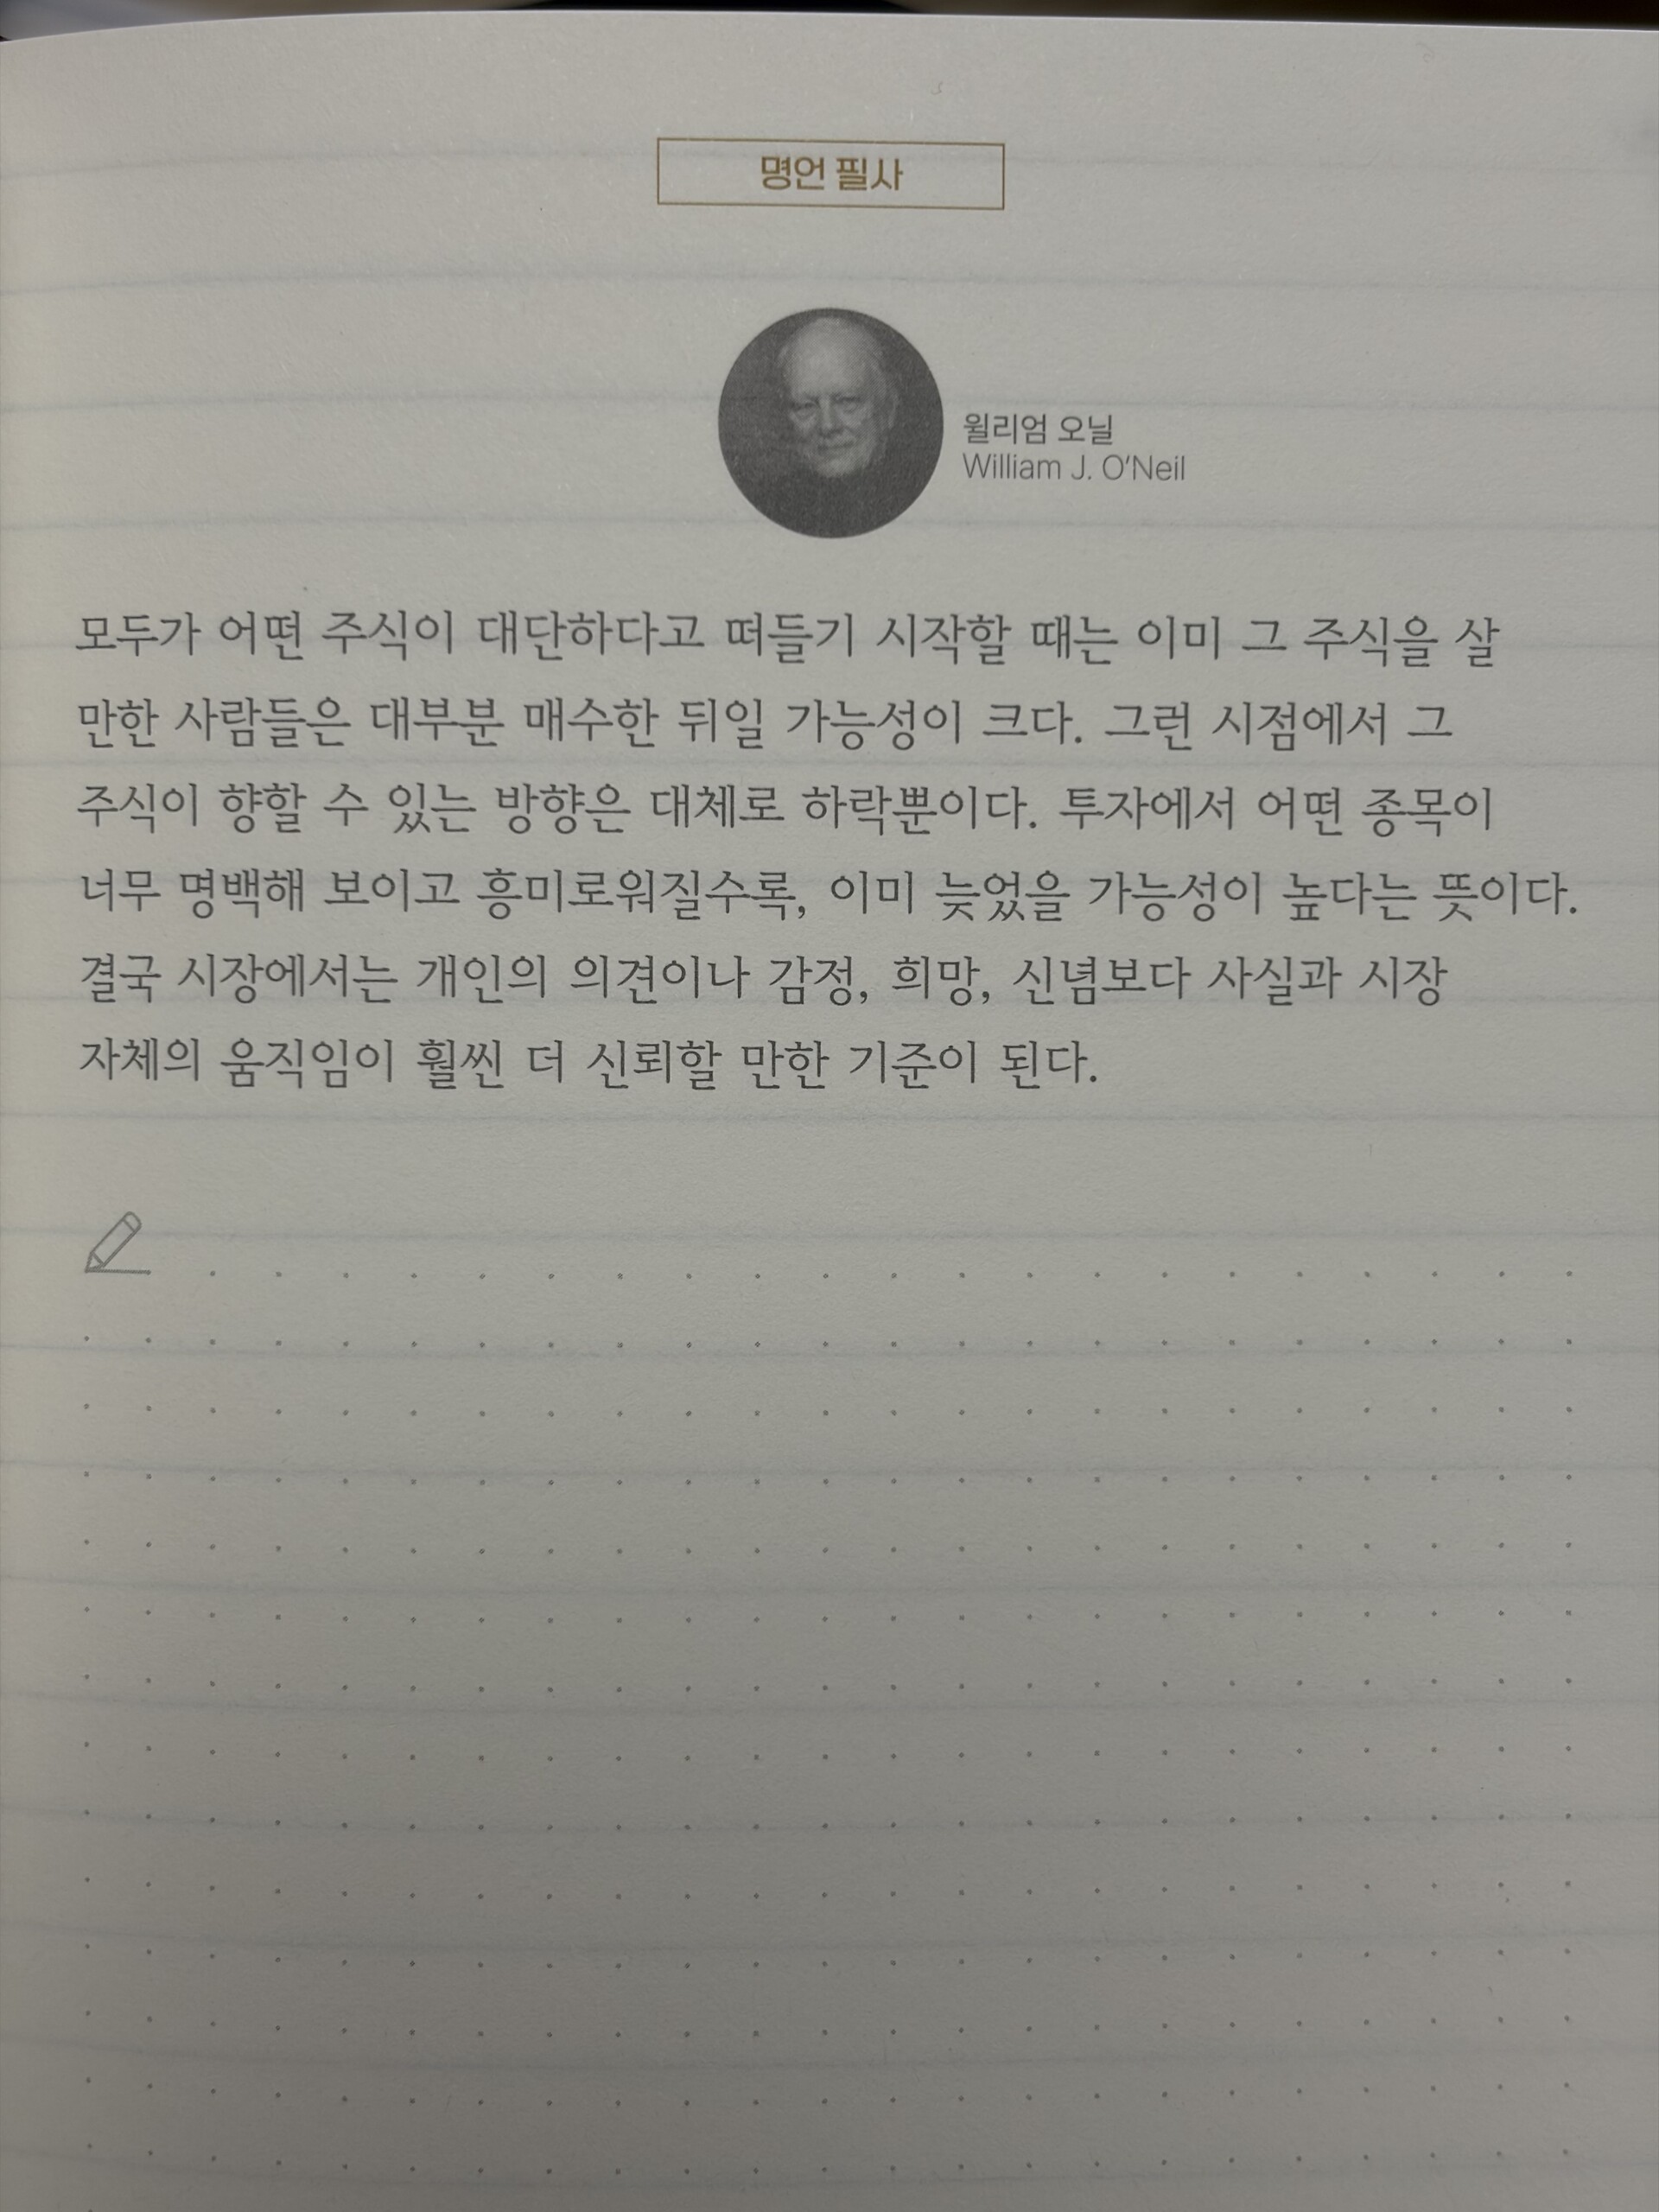 명언 필사
윌리엄 오닐
William J. O'Neil
모두가 어떤 주식이 대단하다고 떠들기 시작할 때는 이미 그 주식을 살
만한 사람들은 대부분 매수한 뒤일 가능성이 크다. 그런 시점에서 그
주식이 향할 수 있는 방향은 대체로 하락뿐이다. 투자에서 어떤 종목이
너무 명백해 보이고 흥미로워질수록, 이미 늦었을 가능성이 높다는 뜻이다.
결국 시장에서는 개인의 의견이나 감정, 희망, 신념보다 사실과 시장
자체의 움직임이 훨씬 더 신뢰할 만한 기준이 된다.